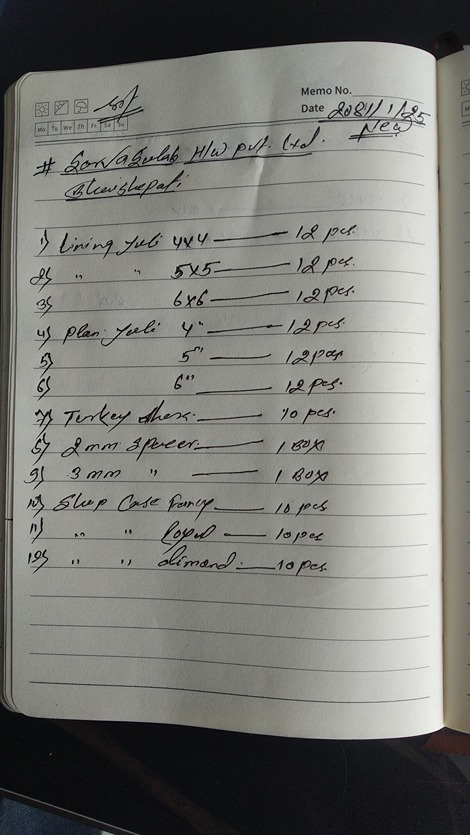 Memo No.
Date 2081/1/25
Mo Tu We Th Fr Sa Su
New
# H/W pvt. Ltd.
1) Lining Jali 4x4 — 12 pcs.
2) " " 5x5 — 12 pcs.
3) 6x6 — 12 pcs.
4) Plan Jali 4" — 12 pcs.
5) 5" — 12 pcs
6) 6" — 12 pcs.
7) Turkey — 10 pcs.
8) 2 mm Spacer — 1 Box
9) 3 mm " — 1 Box
10) Case — 10 pcs
11) " " — 10 pcs
12) " " dimond — 10 pcs